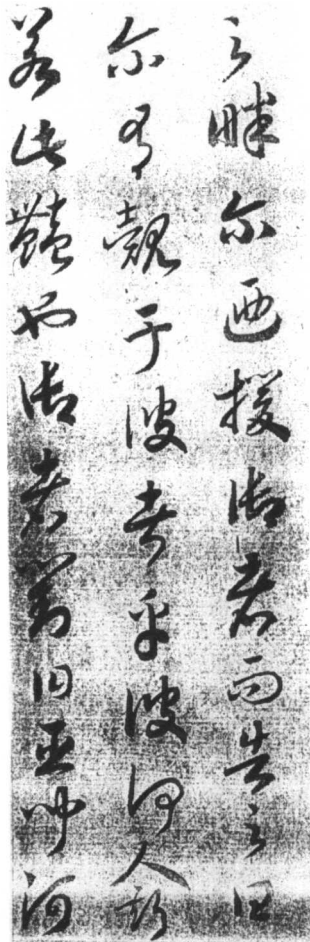 之畔尔迺援御者而告之曰
尔有覿于彼者乎彼何人斯
若此豔也御者對曰臣聞河